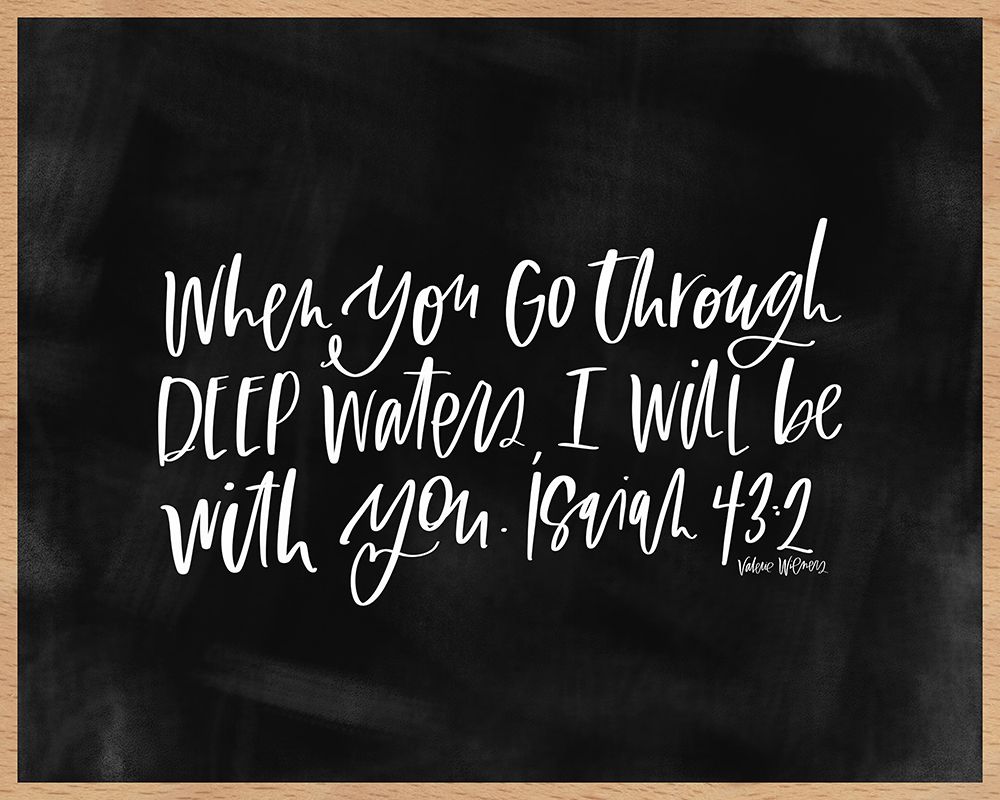 When you Go through
DEEP waters, I will be
with you. Isaiah 43:2
Valerie Wieners